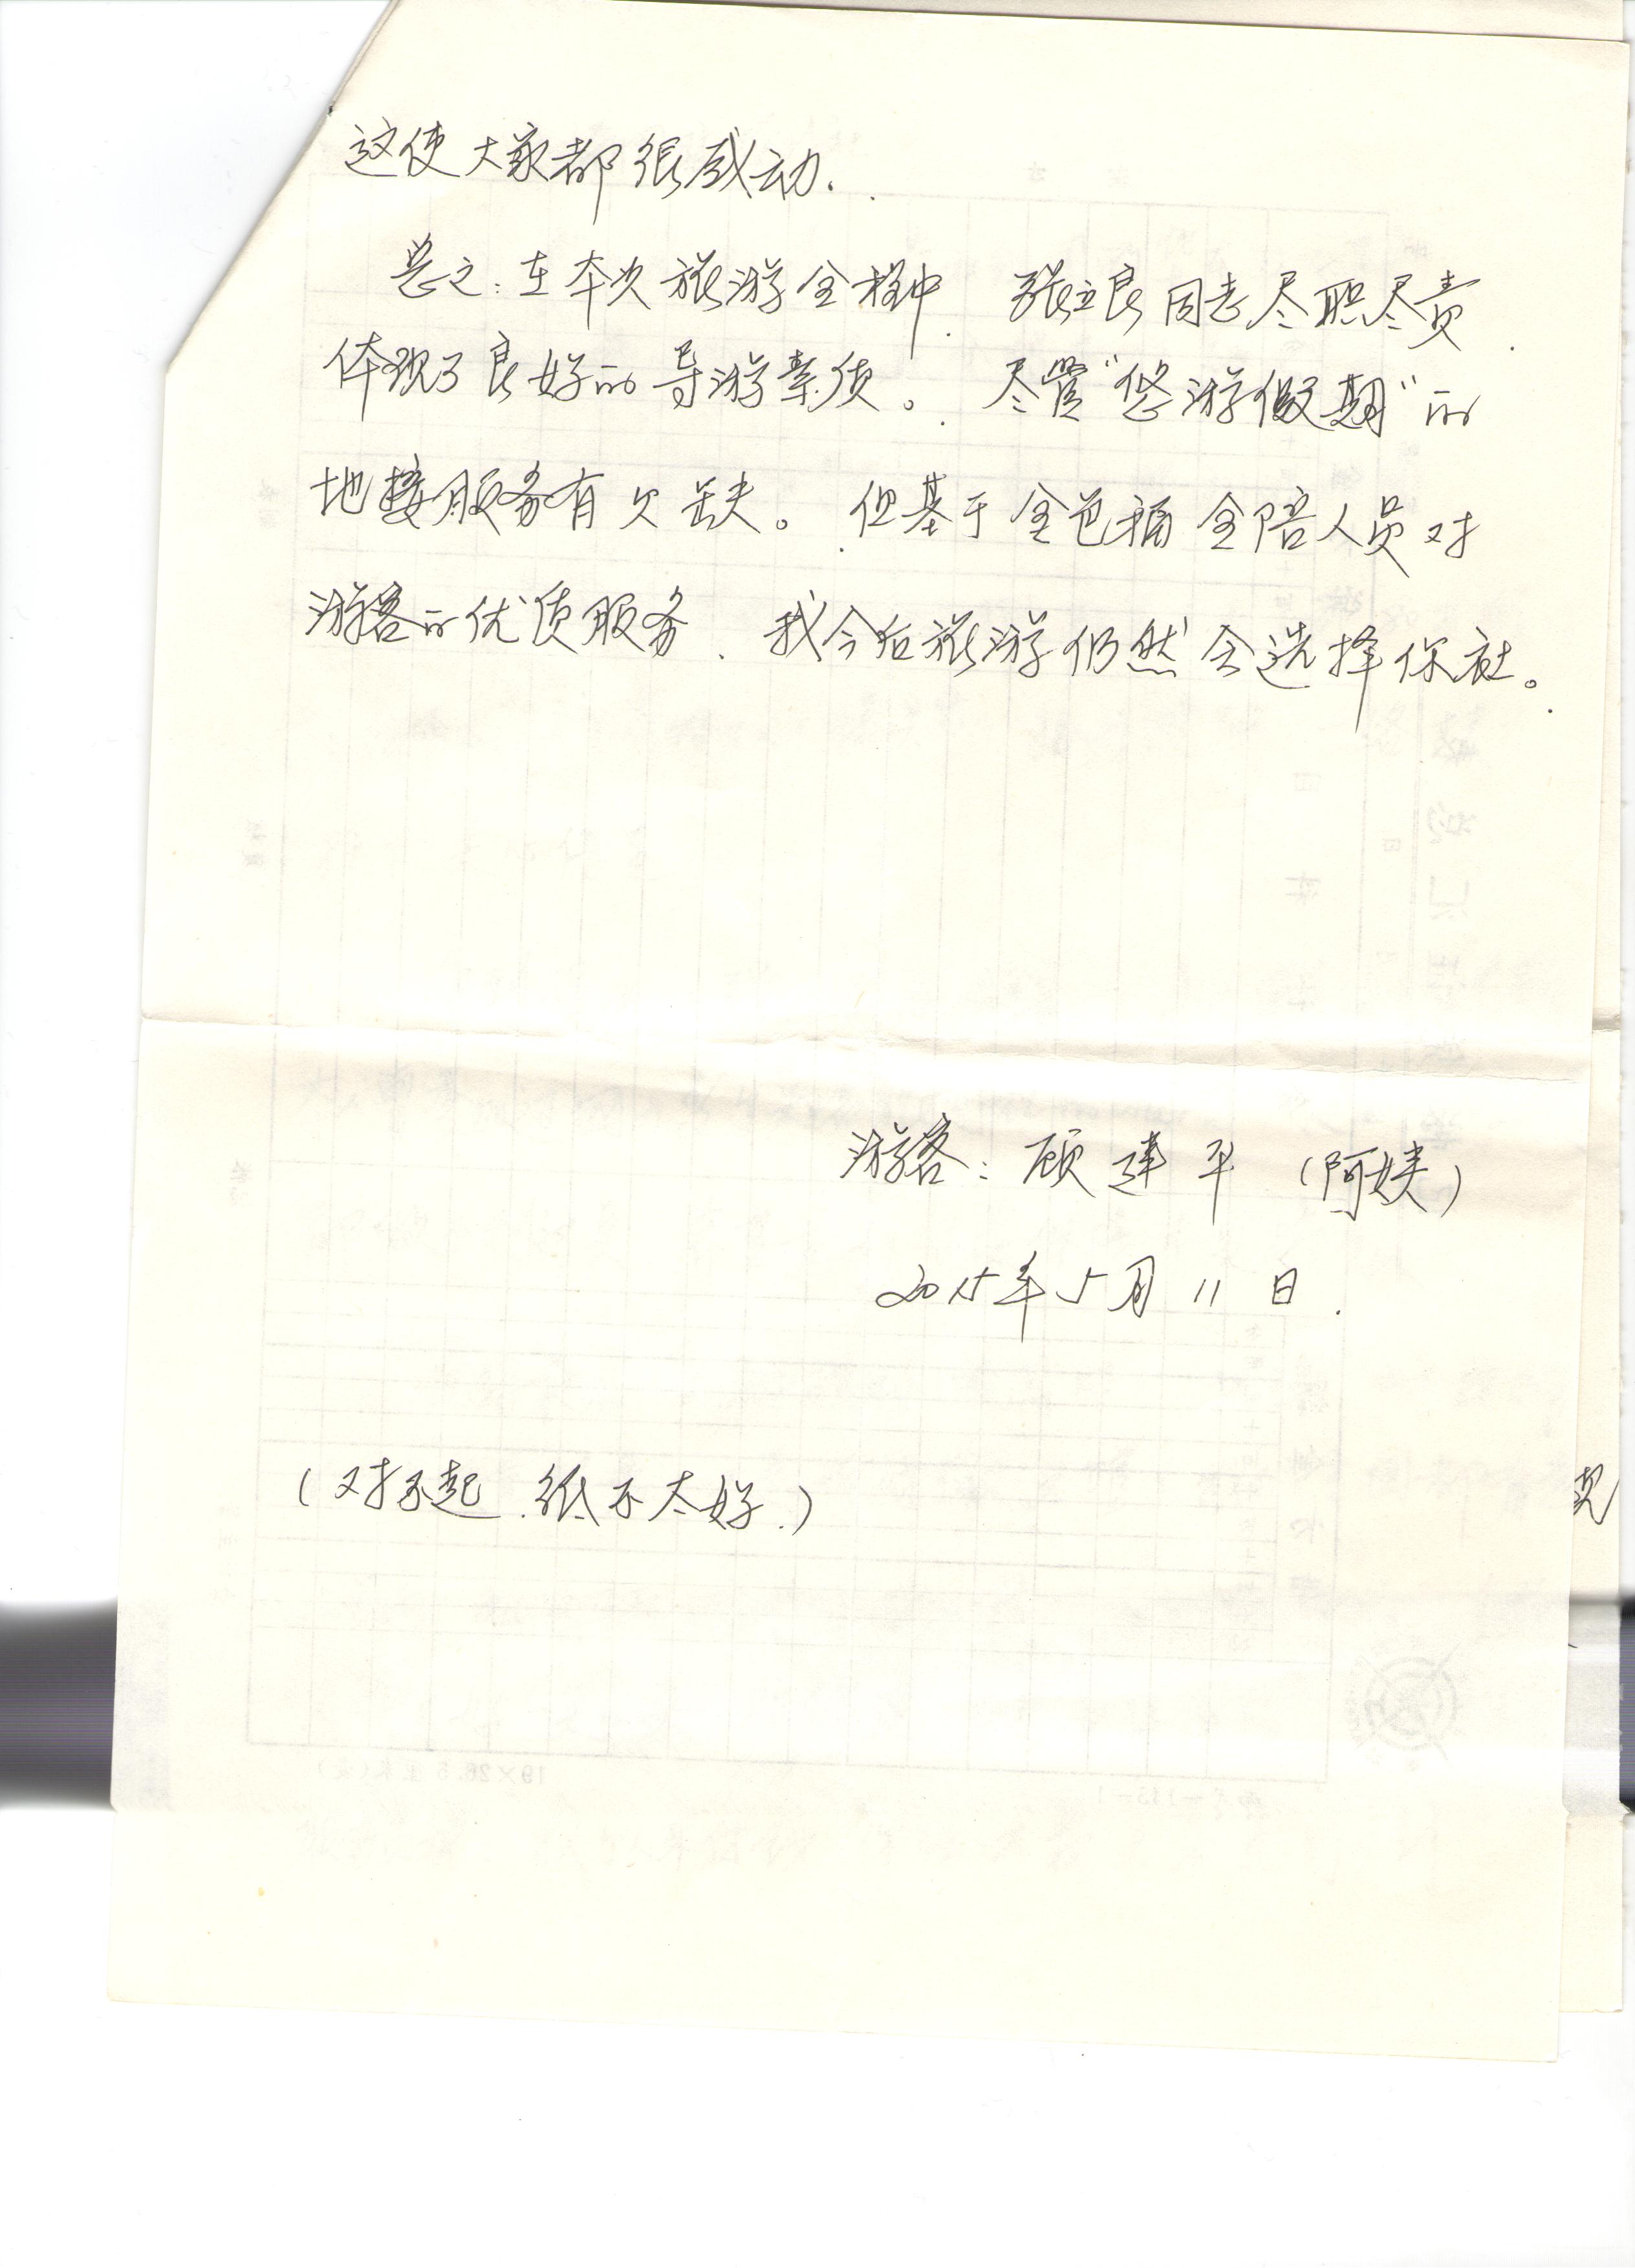 这使大家都很感动.
总之:在本次旅游全程中.张立良同志尽职尽责.
体现了良好的导游素质。尽管“悠游假期”的
地接服务有欠缺。但基于金色福全陪人员对
游客的优质服务、我今后旅游仍然会选择你社。
游客:顾建平(阿姨)
2015年5月11日.
(对不起.纸不太好.)